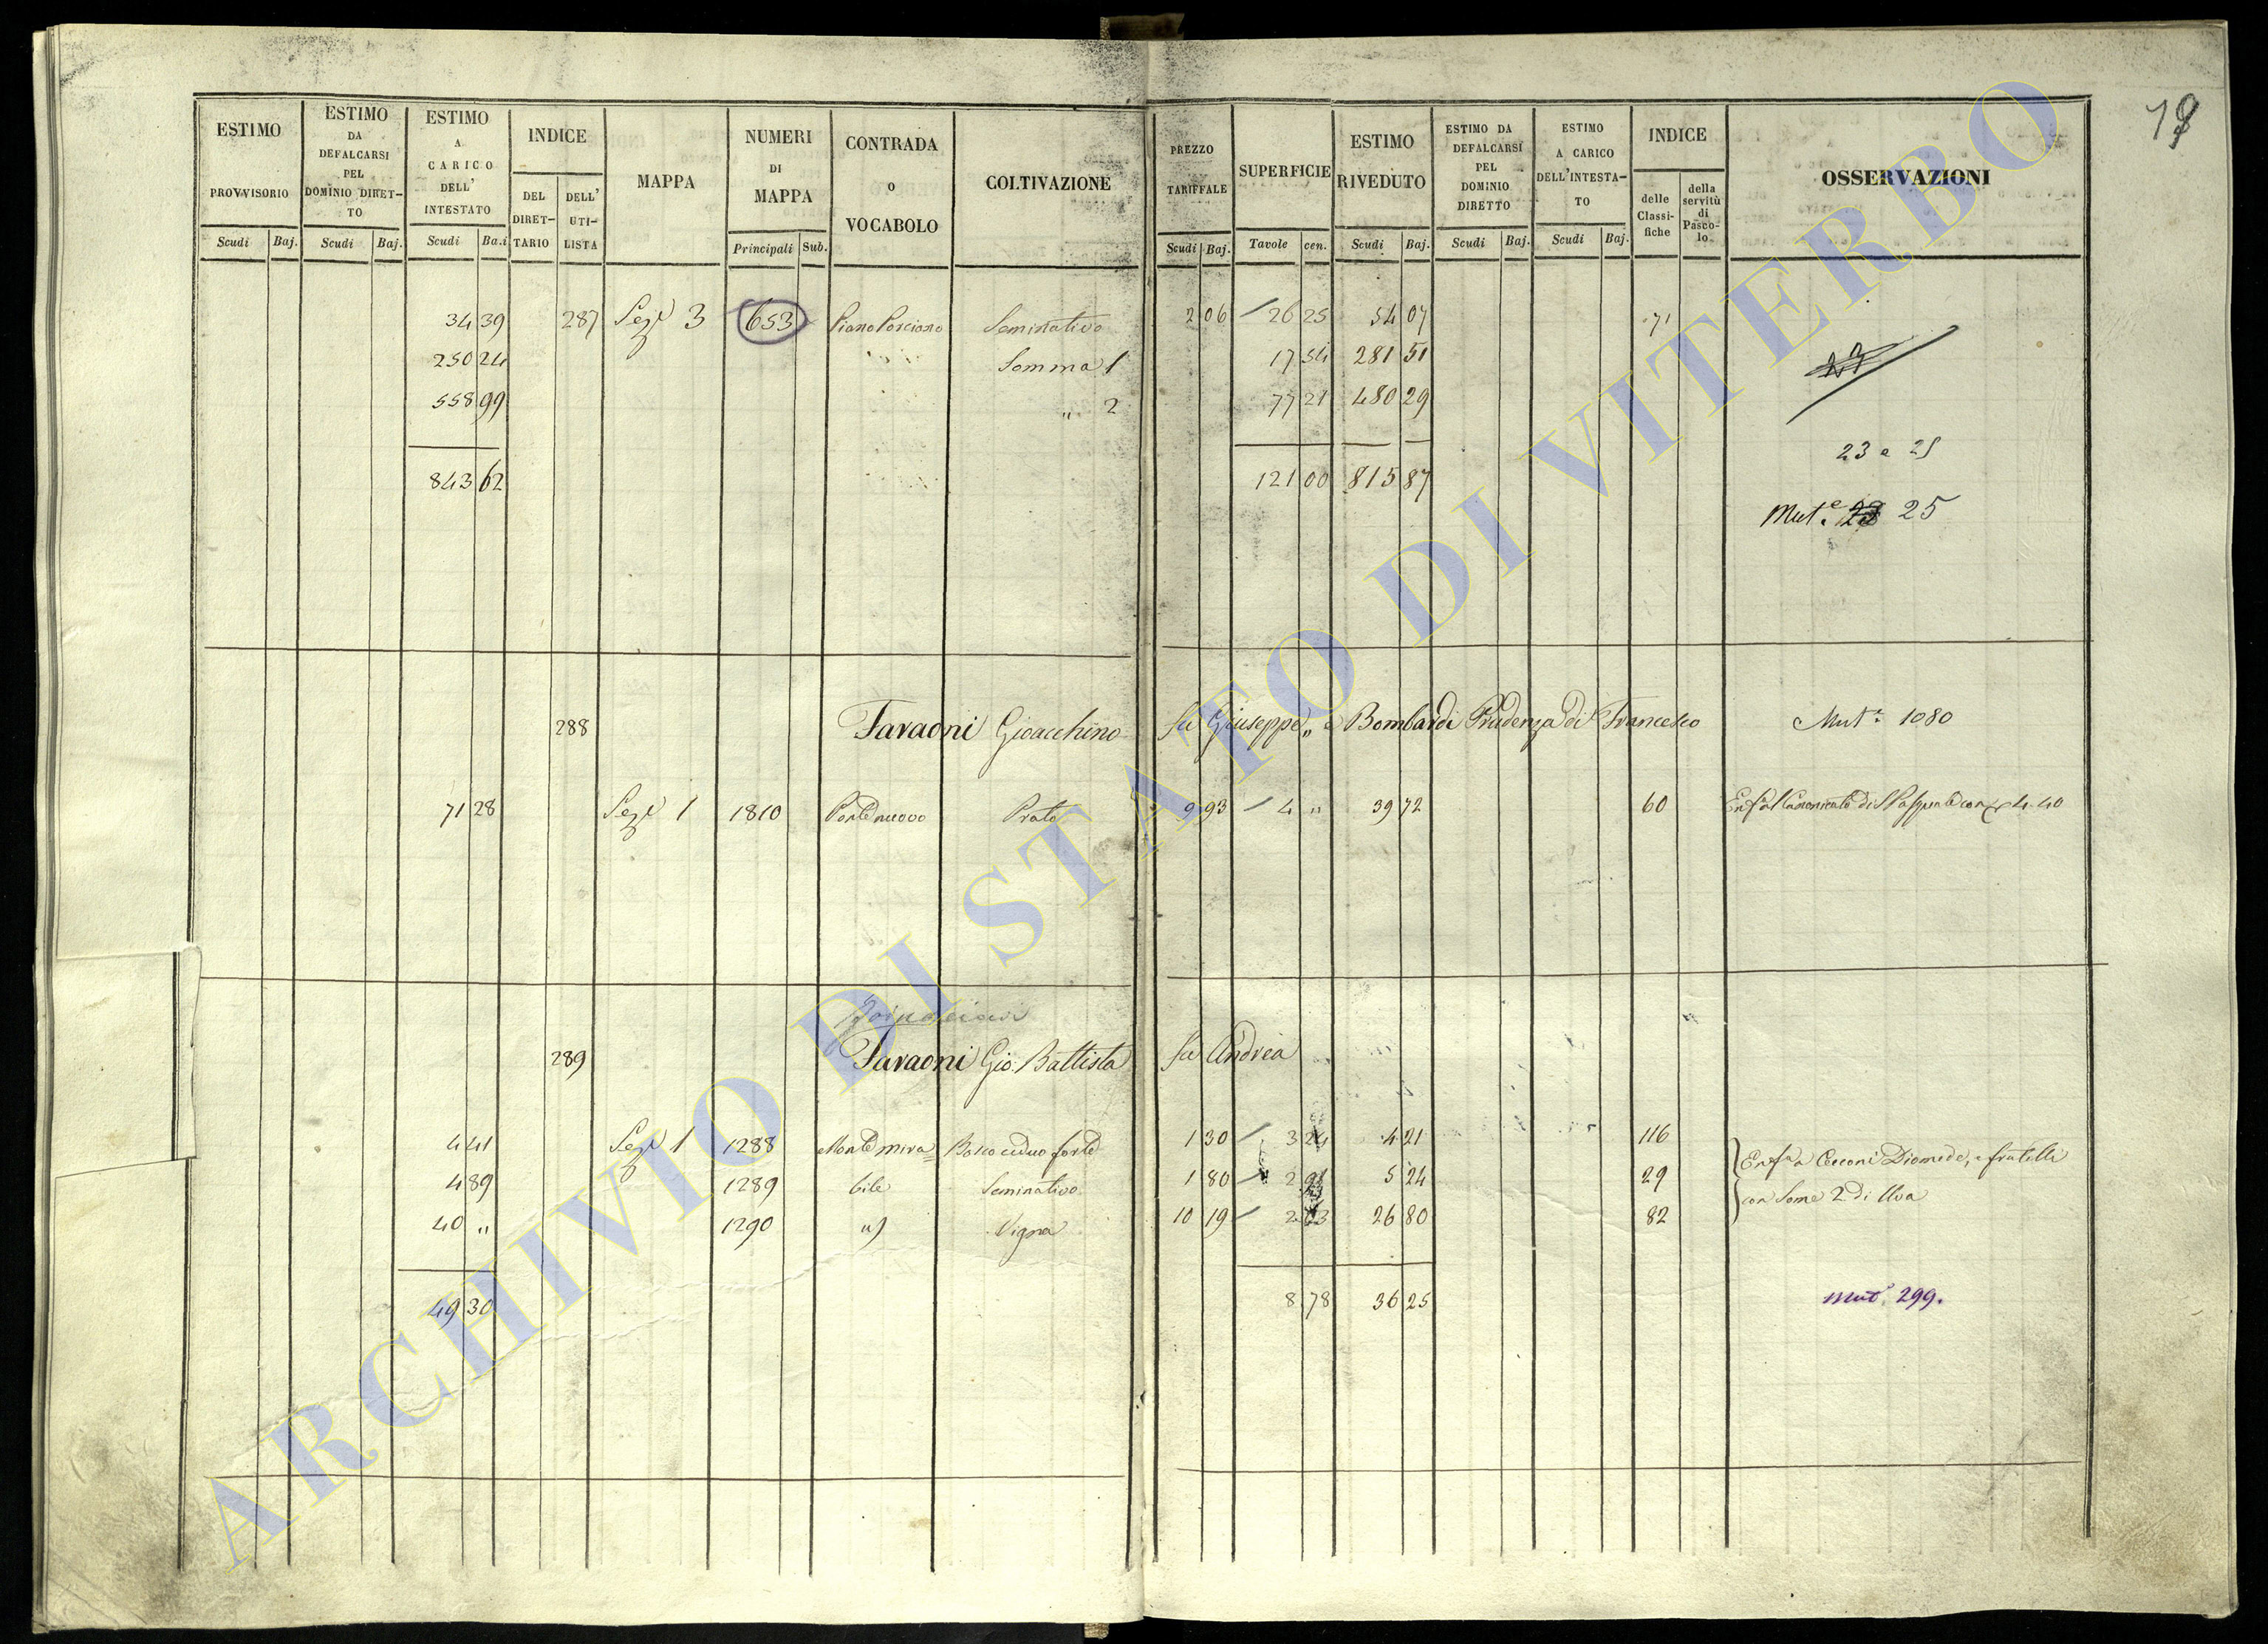 19
ESTIMO PROVVISORIO Scudi Baj.
ESTIMO DA DEFALCARSI PEL DOMINIO DIRET-TO Scudi Baj.
ESTIMO A CARICO DELL' INTESTATO Scudi Ba.i
INDICE DEL DIRET-TARIO DELL' UTI-LISTA
MAPPA
NUMERI DI MAPPA Principali Sub.
CONTRADA O VOCABOLO
COLTIVAZIONE
PREZZO TARIFFALE Scudi Baj.
SUPERFICIE Tavole cen.
ESTIMO RIVEDUTO Scudi Baj.
ESTIMO DA DEFALCARSI PEL DOMINIO DIRETTO Scudi Baj.
ESTIMO A CARICO DELL'INTESTA-TO Scudi Baj.
INDICE delle Classi-fiche della servitù di Pasco-lo
OSSERVAZIONI
34 39 287 Sez.e 3 653 Piano Porciano Seminativo 2 06 26 25 54 07 71
250 24 Somma 1 17 54 281 51
558 99 " 2 77 21 480 29
23 e 25
843 62 121 00 815 87
Mut.e 25
288 Faraoni Gioacchino fu Giuseppe " e Bombardi Prudenza di Francesco Mut.e 1080
71 28 Sez.e 1 1810 Ponte nuovo Prato 9 93 4 " 39 72 60 4.40
289 Faraoni Gio. Battista fu Andrea
4 41 Sez.e 1 1288 Montemira= Bosco ceduo forte 1 30 3 24 4 21 116
4 89 1289 bile Seminativo 1 80 2 91 5 24 29 Enf.a a Cecconi Diomede, e fratelli
40 " 1290 " Vigna 10 19 2 63 26 80 82 con Some 2 di Uva
49 30 8 78 36 25 Mut. 299.
ARCHIVIO DI STATO DI VITERBO